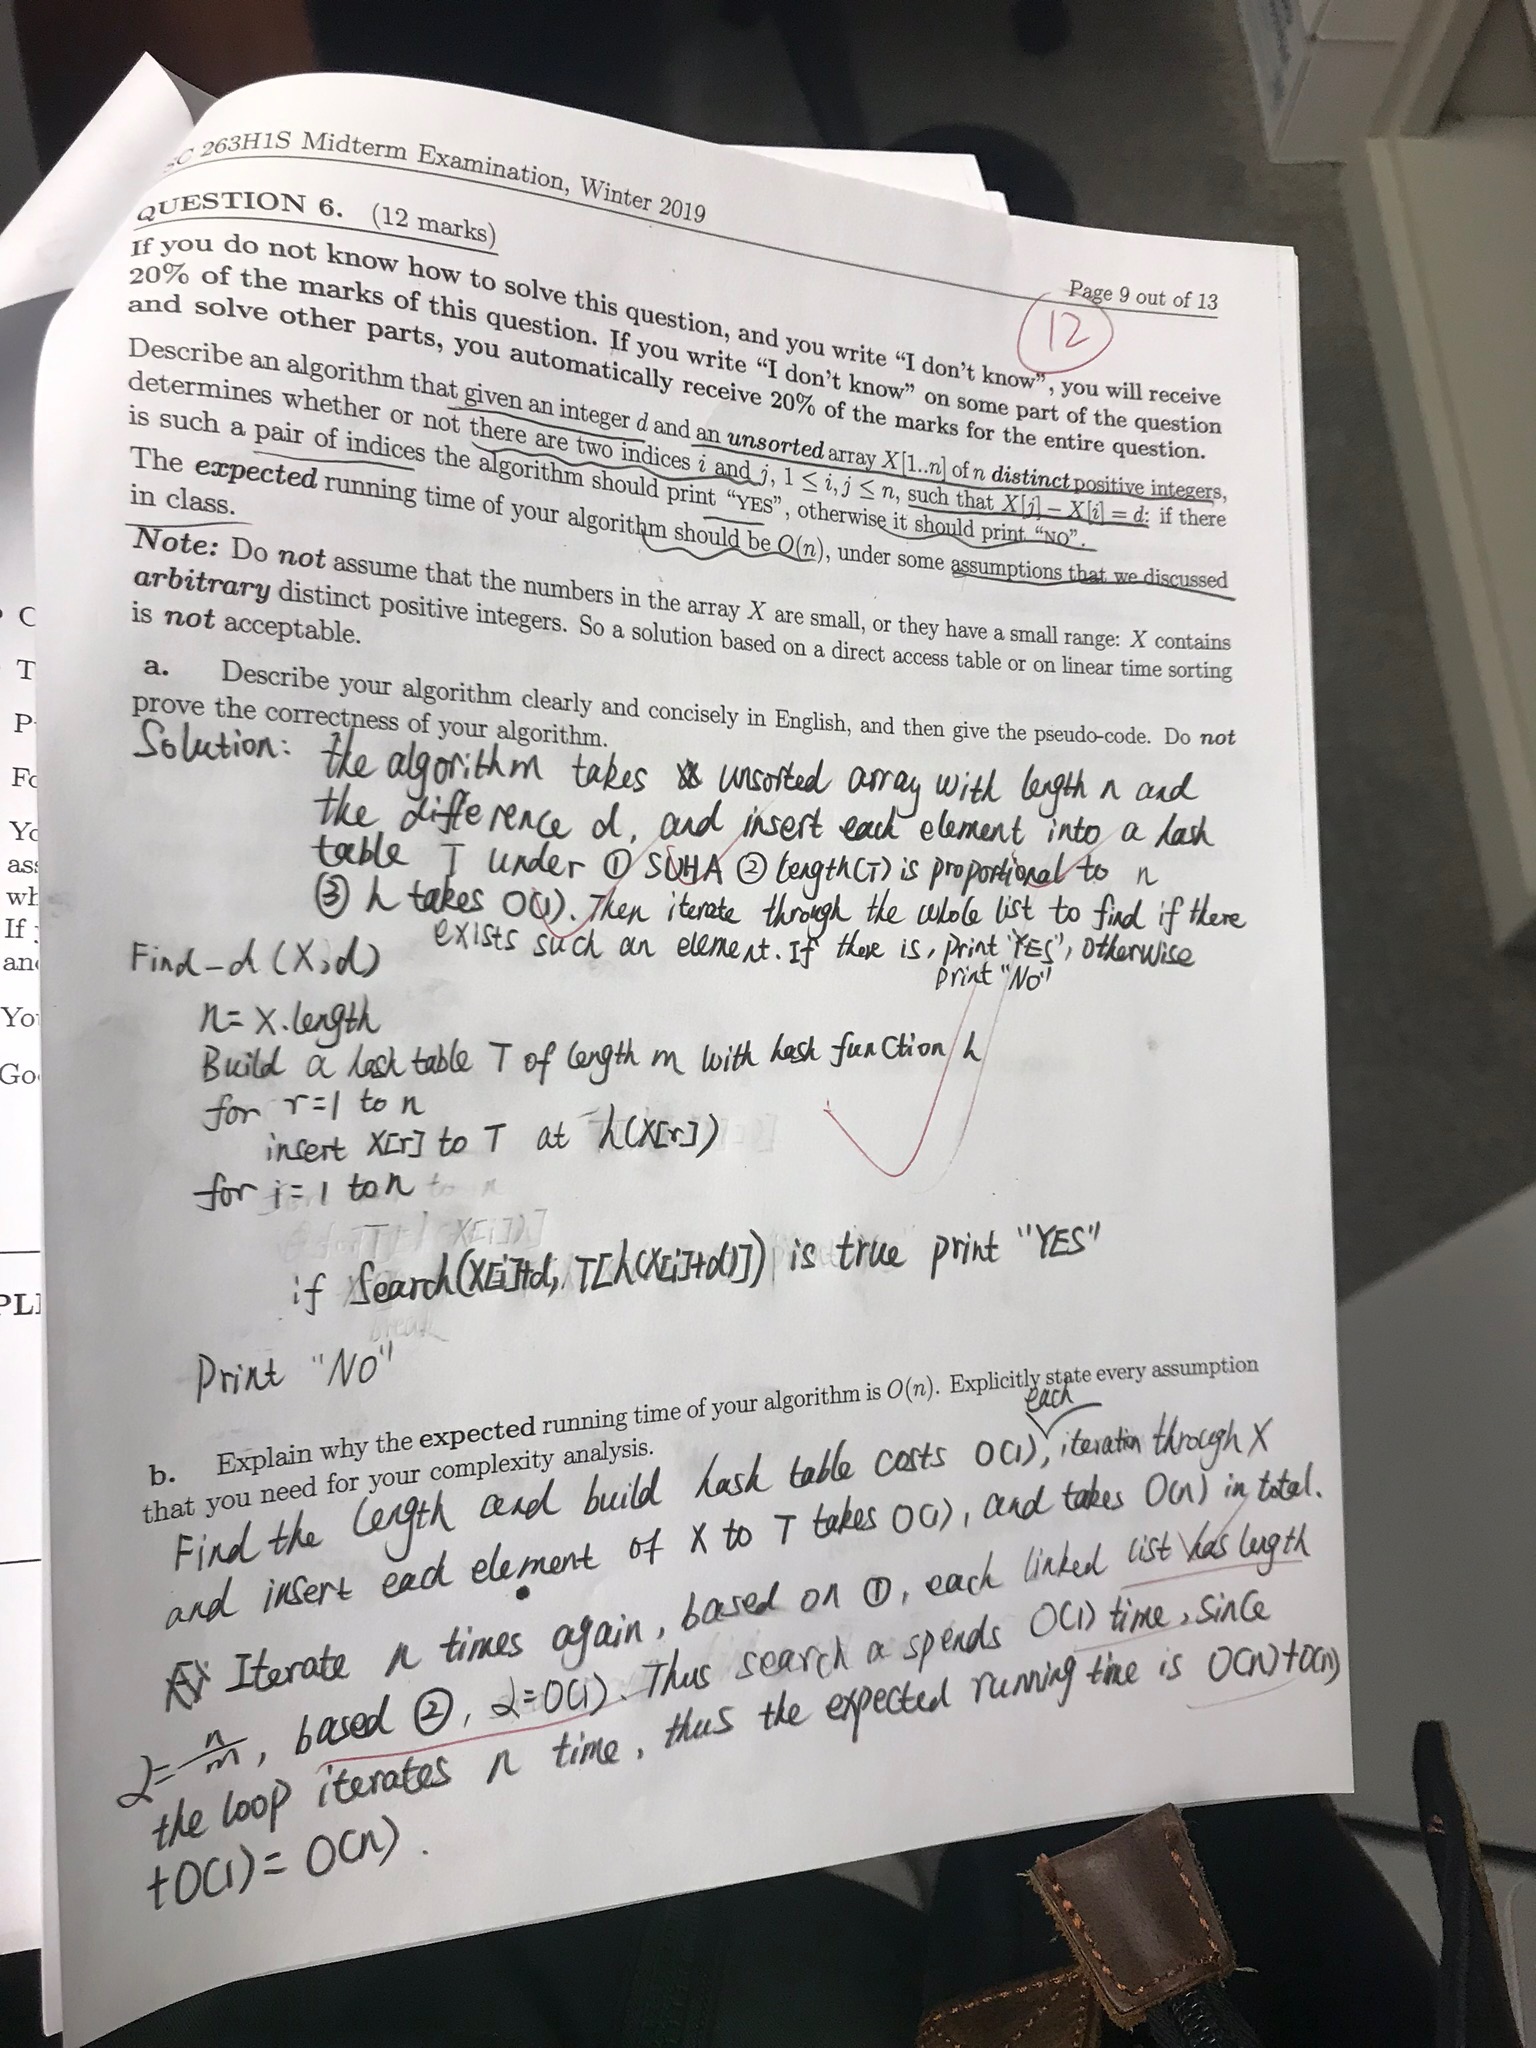 263H1S Midterm Examination, Winter 2019
Page 9 out of 13
12
QUESTION 6. (12 marks)
If you do not know how to solve this question, and you write "I don't know", you will receive
20% of the marks of this question. If you write "I don't know" on some part of the question
and solve other parts, you automatically receive 20% of the marks for the entire question.
Describe an algorithm that given an integer d and an unsorted array X[1..n] of n distinct positive integers,
determines whether or not there are two indices i and j, 1 ≤ i, j ≤ n, such that X[j] − X[i] = d: if there
is such a pair of indices the algorithm should print "YES", otherwise it should print "NO".
The expected running time of your algorithm should be O(n), under some assumptions that we discussed
in class.
Note: Do not assume that the numbers in the array X are small, or they have a small range: X contains
arbitrary distinct positive integers. So a solution based on a direct access table or on linear time sorting
is not acceptable.
a. Describe your algorithm clearly and concisely in English, and then give the pseudo-code. Do not
prove the correctness of your algorithm.
Solution: the algorithm takes unsorted array with length n and
the difference d, and insert each element into a hash
table T under ① SUHA ② length(T) is proportional to n
③ h takes O(1). Then iterate through the whole list to find if there
exists such an element. If there is, print "YES", otherwise
print "No"
Find-d (X,d)
n = X.length
Build a hash table T of length m with hash function h
for r=1 to n
insert X[r] to T at h(X[r])
for i = 1 to n
if Search(X[i]+d, T[h(X[i]+d)]) is true print "YES"
Print "NO"
b. Explain why the expected running time of your algorithm is O(n). Explicitly state every assumption
that you need for your complexity analysis.
Find the length and build hash table costs O(1), each iteration through X
and insert each element of X to T takes O(1), and takes O(n) in total.
Iterate n times again, based on ①, each linked list has length
α = n/m, based ②, α=O(1). Thus search a spends O(1) time, since
the loop iterates n time, thus the expected running time is O(n)+O(n)
+O(1) = O(n).
C
T
P
Fo
Yo
ass
wh
If
and
You
Go
PL